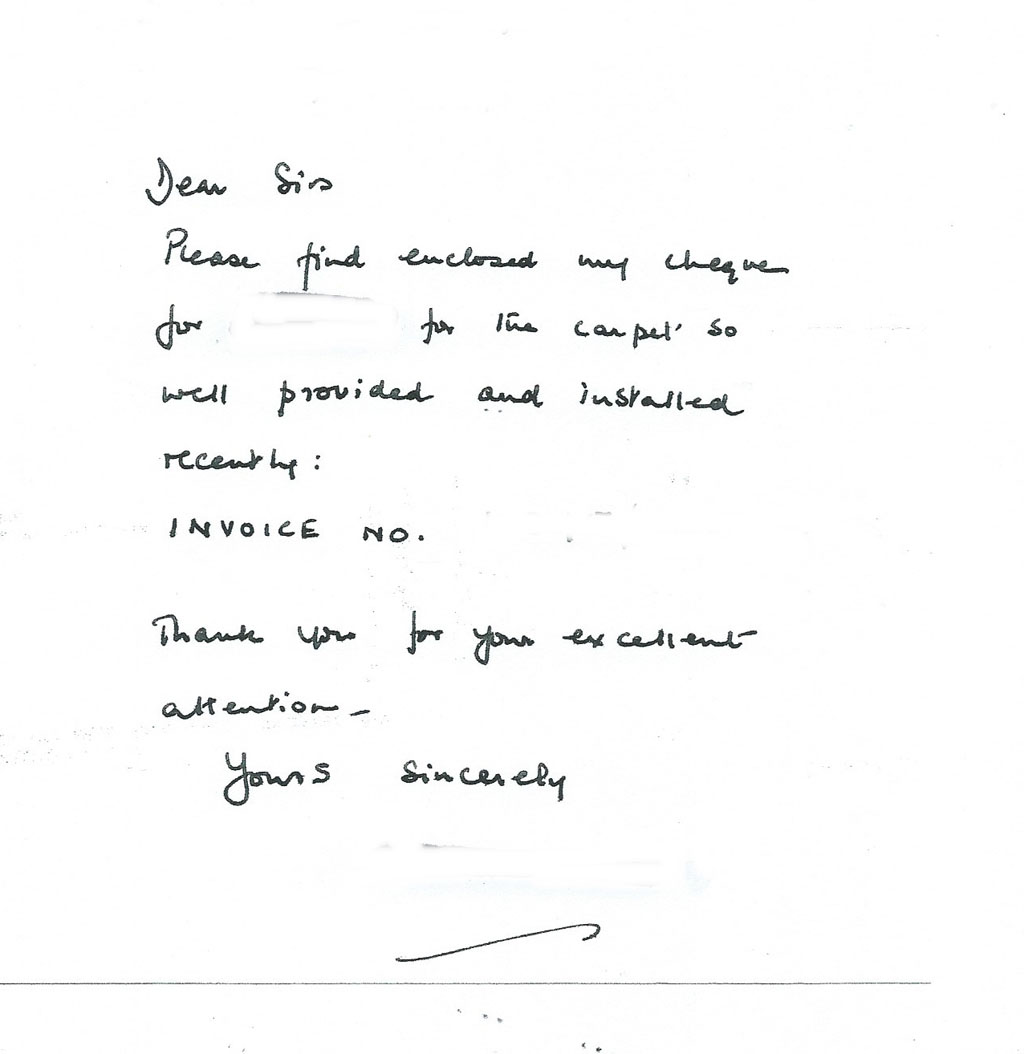 Dear Sirs
Please find enclosed my cheque
for for the carpet so
well provided and installed
recently:
INVOICE NO.
Thank you for your excellent
attention –
Yours sincerely